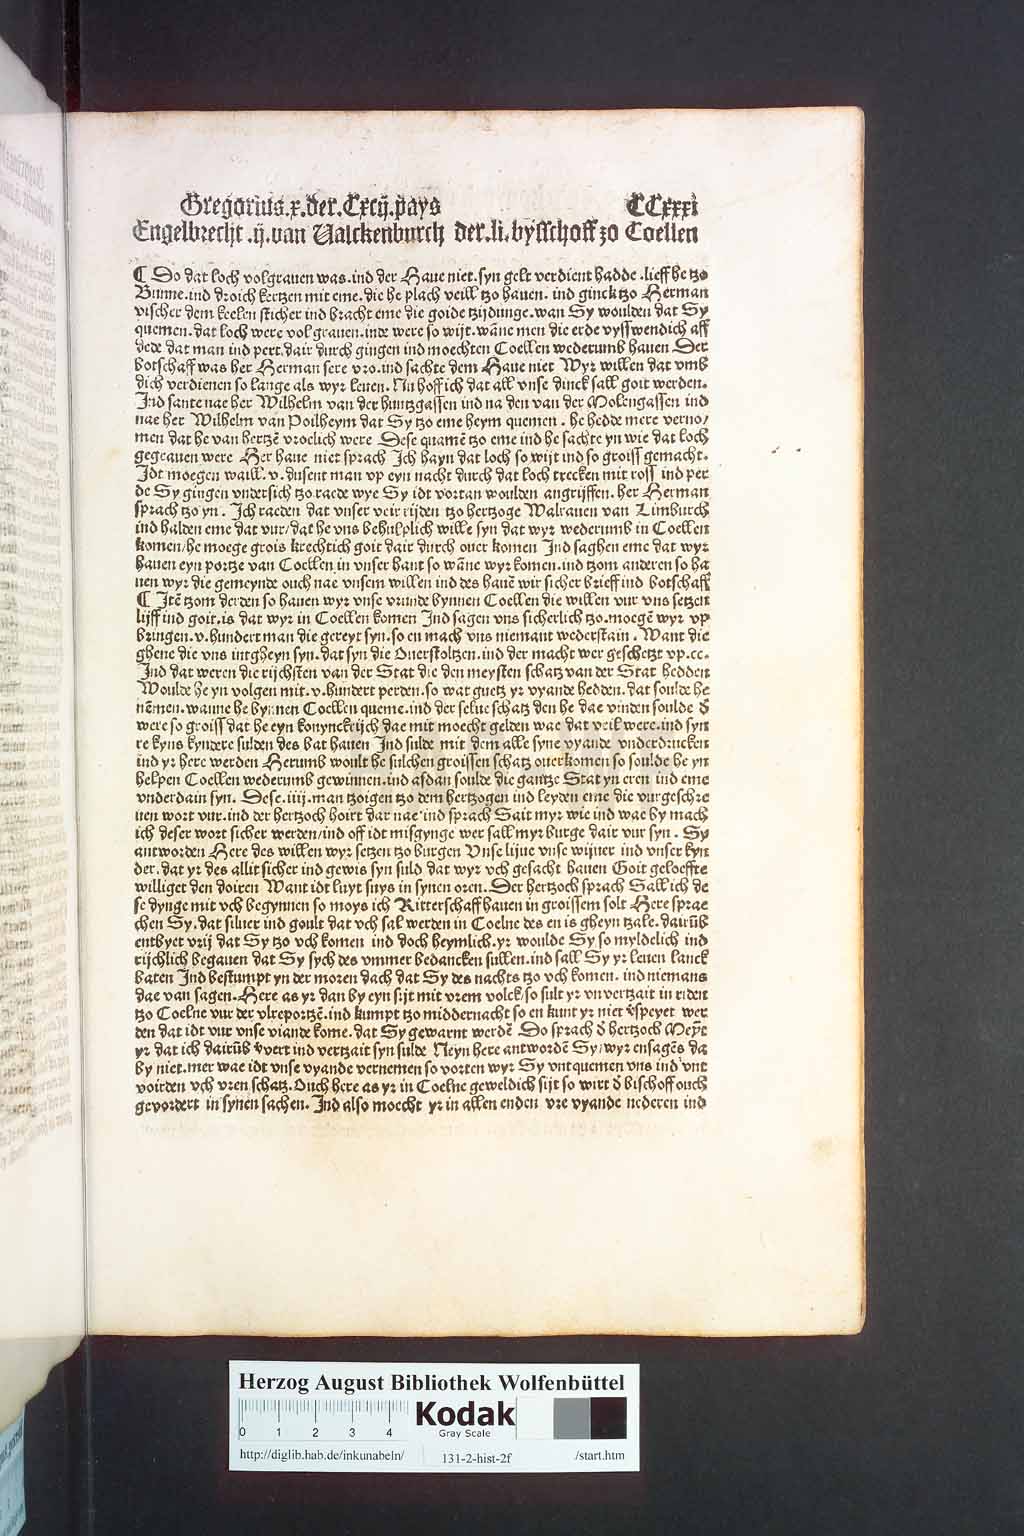 Gregorius .x. der .Cxcij. pays CCxxxi
Engelbrecht .ij. van Valckenburch der .li. bysschoff zo Coellen
¶ Do dat loch volgrauen was .ind der Haue niet .syn gelt verdient hadde .lieff he tzo
Bunne .ind droich kertzen mit eme .die he plach veill tzo hauen. ind ginck tzo Herman
vischer dem keelen sticher ind bracht eme die goide tzijdunge .wan Sy woulden dat Sy
quemen .dat loch were vol grauen .inde were so wijt .wāne men die erde vysswendich aff
dede dat man ind pert .dair durch gingen ind moechten Coellen wederumb hauen Der
botschaff was her Herman sere vro .ind sachte dem Haue niet Wyr willen dat vmb
dich verdienen so lange als wyr leuen. Nu hoff ich dat all vnse dinck sall goit werden.
Ind sante nae her Wilhelm van der huntzgassen ind na den van der Molengassen ind
nae her Wilhelm van Poilheym dat Sy tzo eme heym quemen . he hedde mere verno/
men dat he van hertzē vroelich were Dese quamē tzo eme ind he sachte yn wie dat loch
gegrauen were Her haue niet sprach Ich hayn dat loch so wijt ind so groiss gemacht.
Idt moegen waill .v. dusent man vp eyn nacht durch dat loch trecken mit ross ind per
de Sy gingen vndersich tzo raede wye Sy idt vortan woulden angrijffen. her Herman
sprach tzo yn . Ich raeden dat vnser veir rijden tzo hertzoge Walrauen van Limburch
ind halden eme dat vur/ dat he vns behulplich wille syn dat wyr wederumb in Coellen
komen/ he moege grois krechtich goit dair durch ouer komen Ind saghen eme dat wyr
hauen eyn portze van Coellen in vnser hant so wāne wyr komen .ind tzom anderen so ha
uen wyr die gemeynde ouch nae vnsem willen ind des hauē wir sicher brieff ind botschaff
¶ Itē tzom derden so hauen wyr vnse vrunde bynnen Coellen die willen vur vns setzen
lijff ind goit .is dat wyr in Coellen komen Ind sagen vns sicherlich tzo .moegē wyr vp
bringen .v. hundert man die gereyt syn .so en mach vns niemant wederstain . Want die
ghene die vns intgheyn syn .dat syn die Ouerstoltzen .ind der macht wer geschetzt vp .cc.
Ind dat weren die rijchsten van der Stat die den meysten schatz van der Stat hedden
Woulde he yn volgen mit .v. hundert perden .so wat guetz yr vyande hedden .dat soulde he
nēmen .wanne he bynnen Coellen queme .ind der selue schatz den he dae vinden soulde d̄
were so groiss dat he eyn konynckrijch dae mit moecht gelden wae dat veil were .ind syn
re kyns kyndere sulden des bat hauen Ind sulde mit dem alle syne vyande vnderdrucken
ind yr here werden Herumb woult he sulchen groissen schatz ouerkomen so soulde he yn
helpen Coellen wederumb gewinnen .ind asdan soulde die gantze Stat yn eren ind eme
vnderdain syn. Dese .iiij. man tzoigen tzo dem hertzogen ind leyden eme die vurgeschre
uen wort vur .ind der hertzoch hoirt dar nae ind sprach Sait myr wie ind wae by mach
ich deser wort sicher werden/ ind off idt misgynge wer sall myr burge dair vur syn . Sy
antworden Here des willen wyr setzen tzo burgen Vnse lijue vnse wijuer ind vnser kyn
der .dat yr des allit sicher ind gewis syn suld dat wyr vch gesacht hauen Goit geloeffte
williget den doiren Want idt luyt suys in synen oren. Der hertzoch sprach Sall ich de
se dynge mit vch begynnen so moys ich Ritterschaff hauen in groissem solt Here sprae
chen Sy .dat siluer ind goult dat vch sal werden in Coelne des en is gheyn tzale .dairūb
entbyet vrij dat Sy tzo vch komen ind doch heymlich .yr woulde Sy so myldelich ind
rijchlich begauen dat Sy sych des vmmer bedancken sullen .ind sall Sy yr leuen lanck
baten Ind bestumpt yn der moren dach dat Sy des nachts tzo vch komen. ind niemans
dae van sagen. Here as yr dan by eyn sijt mit vrem volck/ so sult yr vnvertzait in riden
tzo Coelne vur der vlreportzē .ind kumpt tzo middernacht so en kunt yr niet v̄speyet wer
den dat idt vur vnse viande kome .dat Sy gewarnt werdē Do sprach d̄ hertzoch Meynt
yr dat ich dairūb v̄vert ind vertzait syn sulde Neyn here antwordē Sy/ wyr ensagēs da
by niet .mer wae idt vnse vyande vernemen so vorten wyr Sy vntquemen vns ind vnt
voirden vch vren schatz. Ouch here as yr in Coelne geweldich sijt so wirt d̄ bischoff ouch
gevordert in synen sachen. Ind also moecht yr in allen enden vre vyande nederen ind
Herzog August Bibliothek Wolfenbüttel
0 1 2 3 4
Kodak
Gray Scale
http://diglib.hab.de/inkunabeln/ 131-2-hist-2f /start.htm